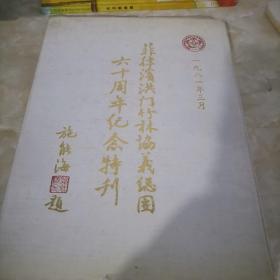 一九八一年三月
菲律濱洪門竹林協義總團
六十周年紀念特刊
施能海
題